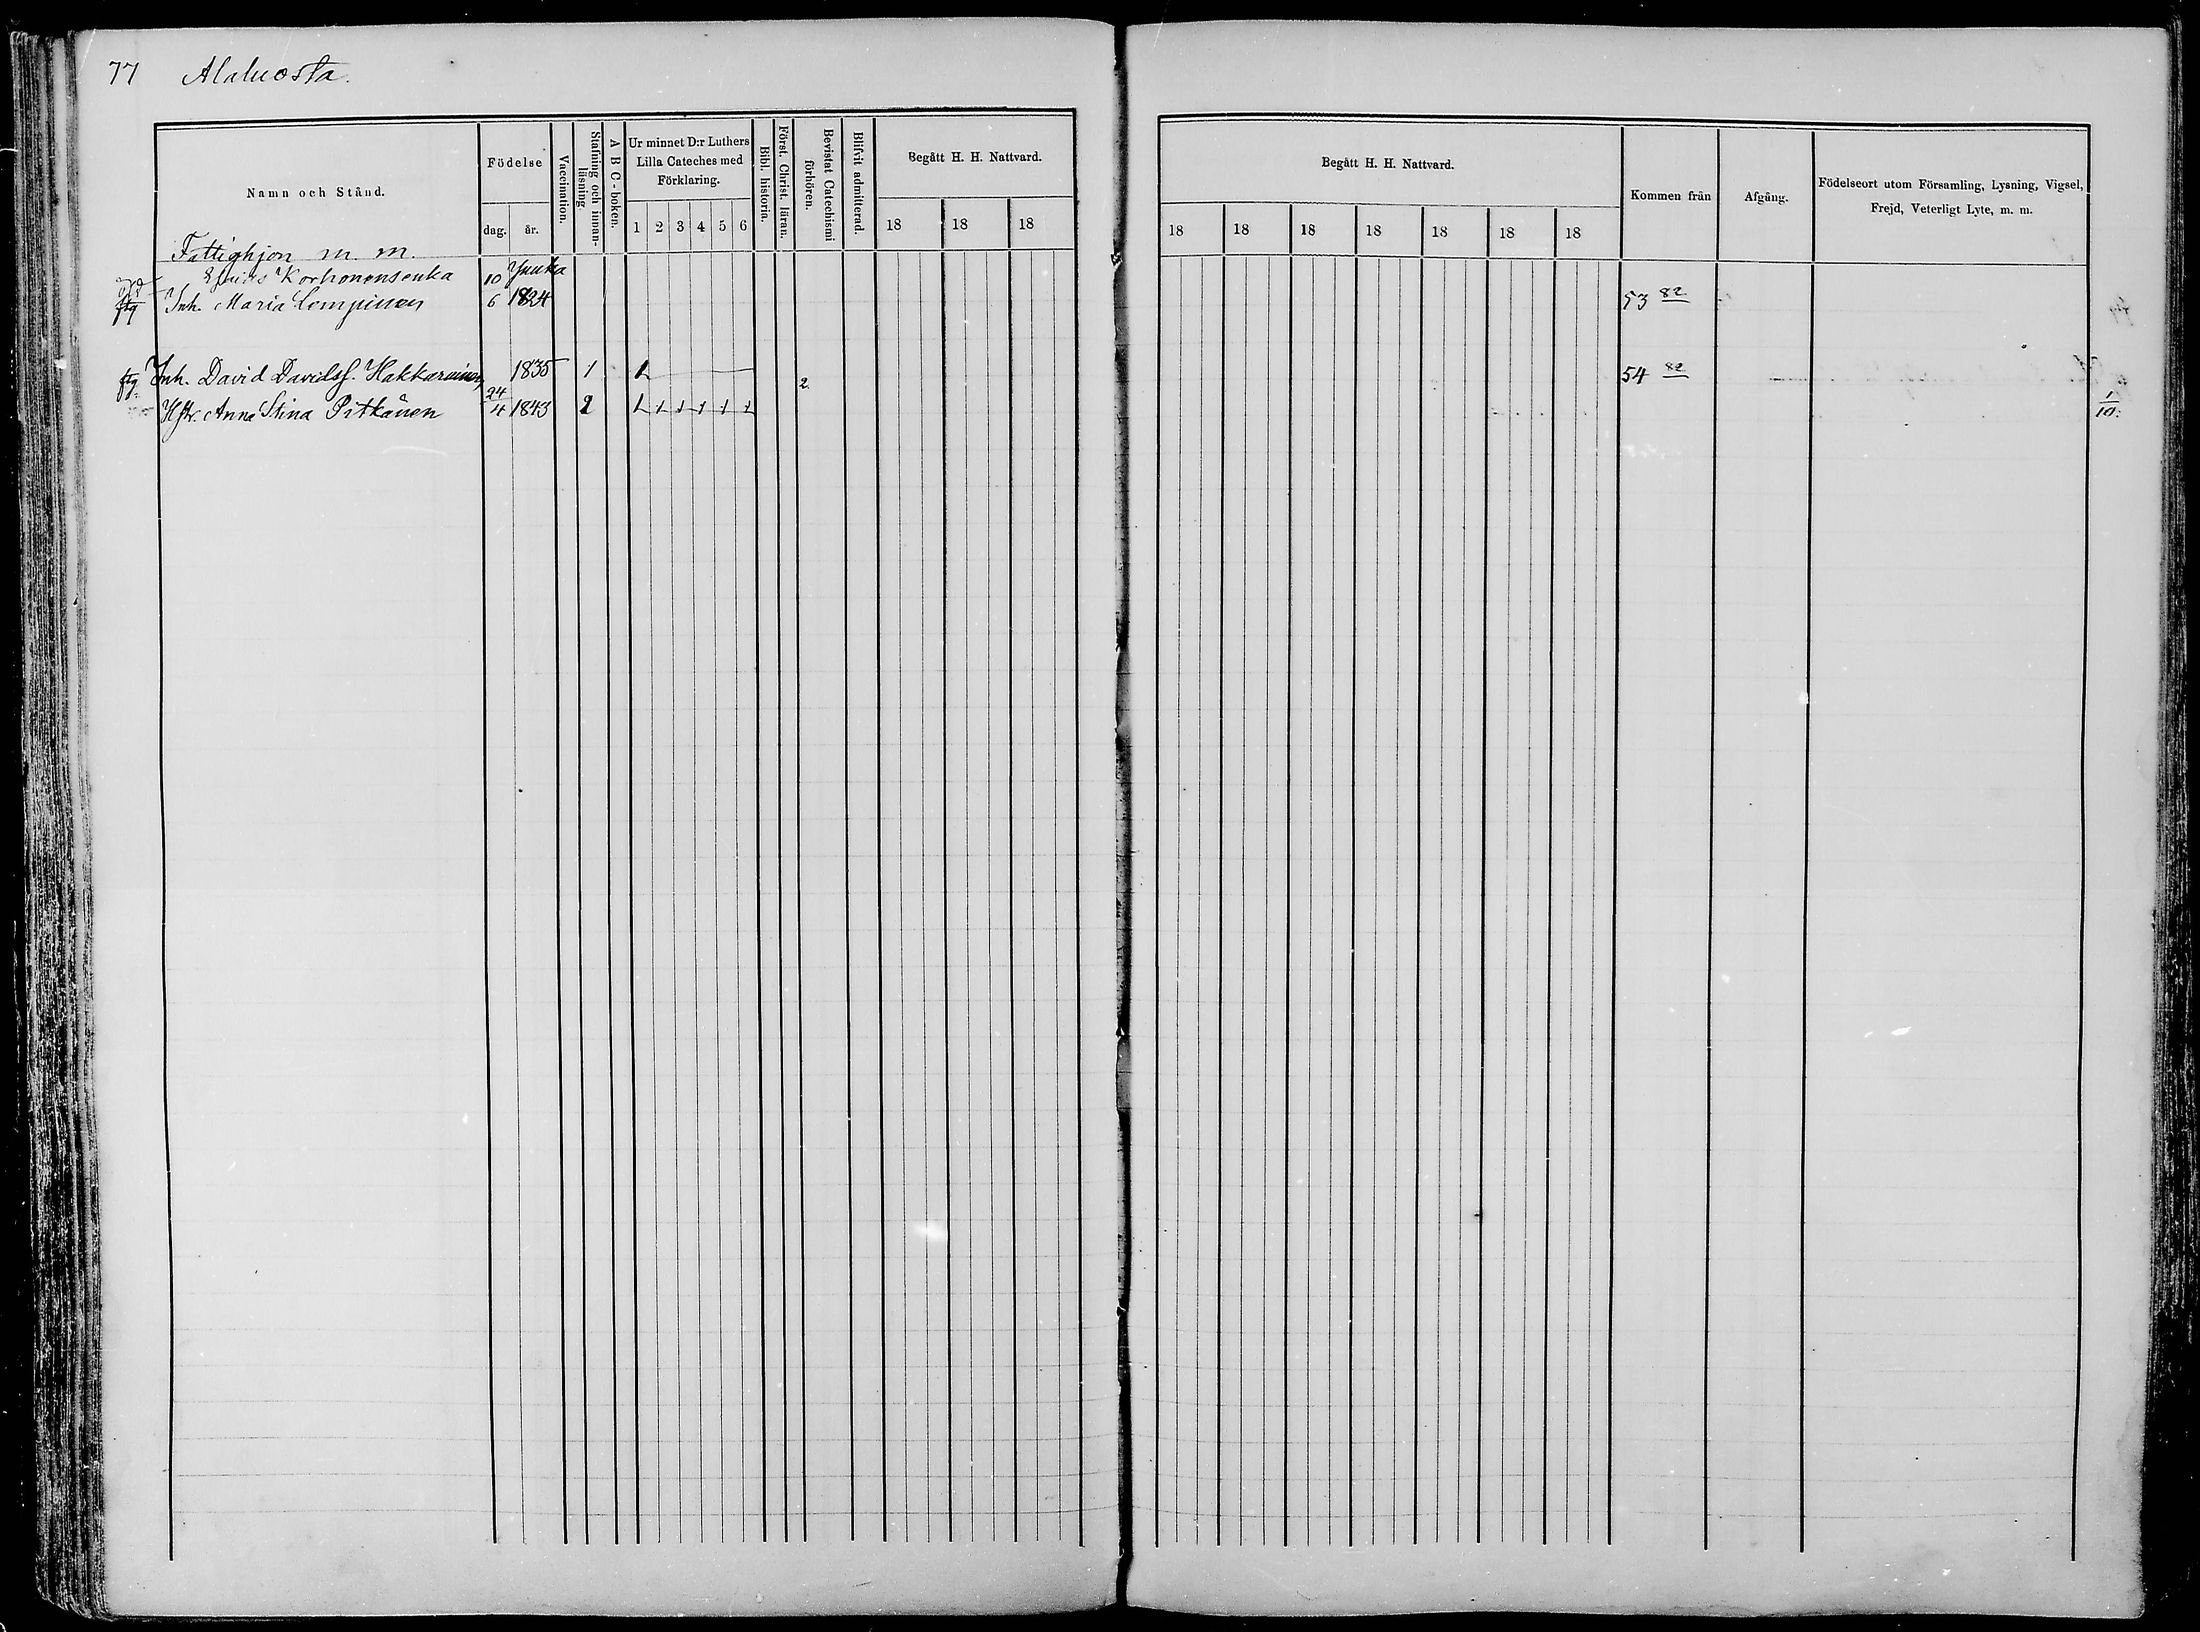 77 Alaluosta.
Namn och Stånd.
Födelse
dag. år.
Vaccination.
Stafning och innan-läsning
A B C-boken.
Ur minnet D:r Luthers
Lilla Cateches med
Förklaring.
1 2 3 4 5 6
Bibl. historia.
Först. Christ. läran.
Bevistat Catechismi förhören.
Blifvit admitterad.
Begått H. H. Nattvard.
18 18 18
Begått H. H. Nattvard.
18 18 18 18 18 18 18
Kommen från
Afgång.
Födelseort utom Församling, Lysning, Vigsel,
Frejd, Veterligt Lyte, m. m.
Fattighjon m. m.
Korhonensenka 10 Juuka
Inh. Maria 6 1824 53 82
Inh. David Davidss. Hakkarainen 1835 1 1 2 54 82
Hstr. Anna Stina Pitkänen 24/4 1843 2 1 1 1 1 1 1 1/10.